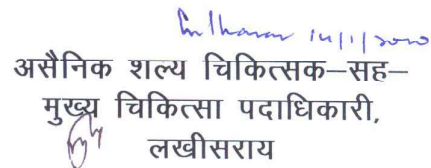 14/1/2020
असैनिक शल्य चिकित्सक–सह–
मुख्य चिकित्सा पदाधिकारी,
लखीसराय